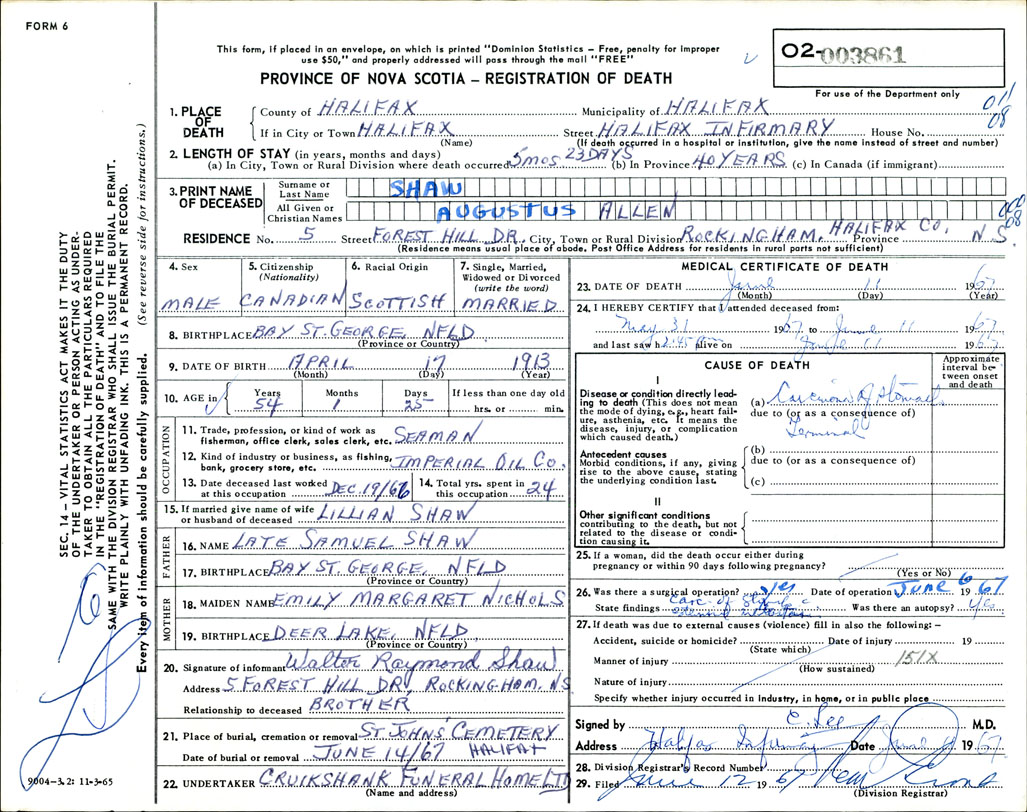 FORM 6
This form, if placed in an envelope, on which is printed "Dominion Statistics – Free, penalty for improper
use $50," and properly addressed will pass through the mail "FREE"
PROVINCE OF NOVA SCOTIA – REGISTRATION OF DEATH
O2-003861
For use of the Department only
011
08
1. PLACE OF DEATH
County of HALIFAX Municipality of HALIFAX
If in City or Town HALIFAX Street HALIFAX INFIRMARY House No.
(Name) (If death occurred in a hospital or institution, give the name instead of street and number)
2. LENGTH OF STAY (in years, months and days)
(a) In City, Town or Rural Division where death occurred 5 mos 23 DAYS (b) In Province 40 YEARS (c) In Canada (if immigrant)
3. PRINT NAME OF DECEASED
Surname or Last Name SHAW
All Given or Christian Names AUGUSTUS ALLEN
RESIDENCE No. 5 Street FOREST HILL DR. City, Town or Rural Division ROCKINGHAM, HALIFAX CO, Province N S.
(Residence means usual place of abode. Post Office Address for residents in rural parts not sufficient)
4. Sex MALE
5. Citizenship (Nationality) CANADIAN
6. Racial Origin SCOTTISH
7. Single, Married, Widowed or Divorced (write the word) MARRIED
8. BIRTHPLACE BAY ST. GEORGE, NFLD
(Province or Country)
9. DATE OF BIRTH APRIL 17 1913
(Month) (Day) (Year)
10. AGE in Years 54 Months 1 Days 25 If less than one day old hrs. or min.
OCCUPATION
11. Trade, profession, or kind of work as fisherman, office clerk, sales clerk, etc. SEAMAN
12. Kind of industry or business, as fishing, bank, grocery store, etc. IMPERIAL OIL CO.
13. Date deceased last worked at this occupation DEC. 19/66
14. Total yrs. spent in this occupation 24
15. If married give name of wife or husband of deceased LILLIAN SHAW
FATHER
16. NAME LATE SAMUEL SHAW
17. BIRTHPLACE BAY ST. GEORGE, NFLD
(Province or Country)
MOTHER
18. MAIDEN NAME EMILY MARGARET NICHOLS
19. BIRTHPLACE DEER LAKE, NFLD
(Province or Country)
20. Signature of informant Walter Raymond Shaw
Address 5 FOREST HILL DR, ROCKINGHAM. NS
Relationship to deceased BROTHER
21. Place of burial, cremation or removal ST. JOHNS CEMETERY
Date of burial or removal JUNE 14/67 HALIFAX
22. UNDERTAKER CRUIKSHANK FUNERAL HOME LTD
(Name and address)
MEDICAL CERTIFICATE OF DEATH
23. DATE OF DEATH June 11 1967
(Month) (Day) (Year)
24. I HEREBY CERTIFY that I attended deceased from:
May 31 1967 to June 11 1967
and last saw h alive on June 11 1967
CAUSE OF DEATH
Approximate interval between onset and death
I
Disease or condition directly leading to death (This does not mean the mode of dying, e.g., heart failure, asthenia, etc. It means the disease, injury, or complication which caused death.)
(a) Carcinoma of Stomach
due to (or as a consequence of)
Terminal
Antecedent causes
Morbid conditions, if any, giving rise to the above cause, stating the underlying condition last.
(b)
due to (or as a consequence of)
(c)
II
Other significant conditions contributing to the death, but not related to the disease or condition causing it.
25. If a woman, did the death occur either during pregnancy or within 90 days following pregnancy?
(Yes or No)
26. Was there a surgical operation? yes Date of operation JUNE 6 1967
State findings Carc. of Was there an autopsy?
27. If death was due to external causes (violence) fill in also the following: –
Accident, suicide or homicide? Date of injury 19
(State which)
Manner of injury 151X
(How sustained)
Nature of injury
Specify whether injury occurred in industry, in home, or in public place
Signed by C. Lee M.D.
Address Halifax Infirmary Date June 1967
28. Division Registrar's Record Number
29. Filed June 12 1967
(Division Registrar)
SEC. 14 – VITAL STATISTICS ACT MAKES IT THE DUTY
OF THE UNDERTAKER OR PERSON ACTING AS UNDER-
TAKER TO OBTAIN ALL THE PARTICULARS REQUIRED
IN THE "REGISTRATION OF DEATH" AND TO FILE THE
SAME WITH THE DIVISION REGISTRAR WHO SHALL ISSUE THE BURIAL PERMIT.
WRITE PLAINLY WITH UNFADING INK. THIS IS A PERMANENT RECORD.
Every item of information should be carefully supplied. (See reverse side for instructions.)
9004-3.2: 11-3-65